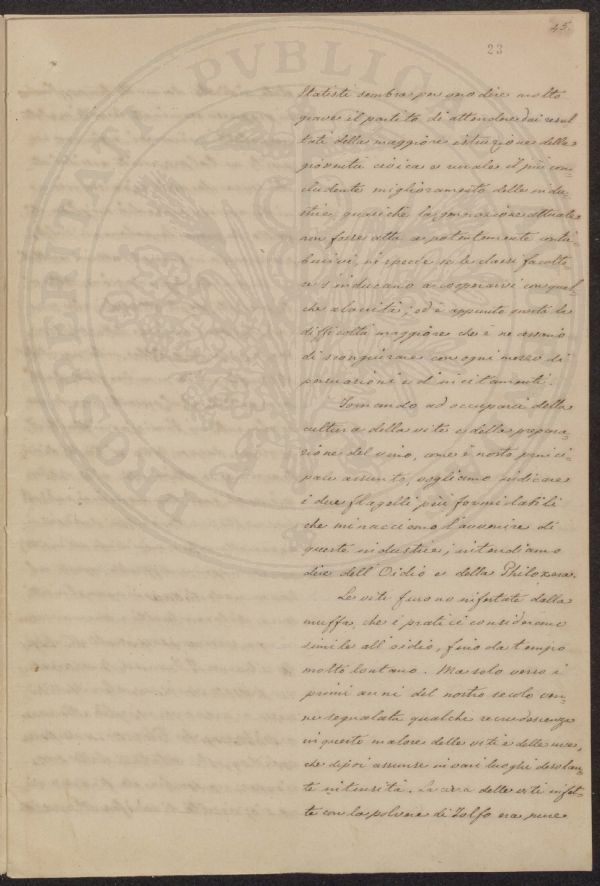 45.
23
PROSPERITATI PUBLICAE
Statisti sembra per vero dire molto
grave il partito di attendere dai resul
tati della maggiore istruzione della
gioventù civica e rurale il più con-
cludente miglioramento delle indu-
strie, quasichè la generazione attuale
non fosse atta a potentemente contri-
buirvi, in specie se le classi facolto-
se s'inducano a cooperarvi con qual
che alacrità; ed è appunto questa la
difficoltà maggiore che è necessario
di scongiurare con ogni mezzo di
persuasioni e d'incitamenti.
Tornando ad occuparci della
cultura della vite e della prepara-
zione del vino, come è nostro princi-
pale assunto, vogliamo indicare
i due flagelli più formidabili
che minacciono l'avvenire di
queste industrie; intendiamo
dire dell'Oidio e della Philoxera.
Le viti furono infestate dalla
muffa, che i pratici considerano
simile all'oidio, fino da tempo
molto lontano. Ma solo verso i
primi anni del nostro secolo ven-
ne segnalata qualche recrudescenza
in questo malore delle viti e delle uve,
che dipoi assunse in vari luoghi desolan-
te intensità. La cura delle viti infet-
te con la polvere di Zolfo era pure